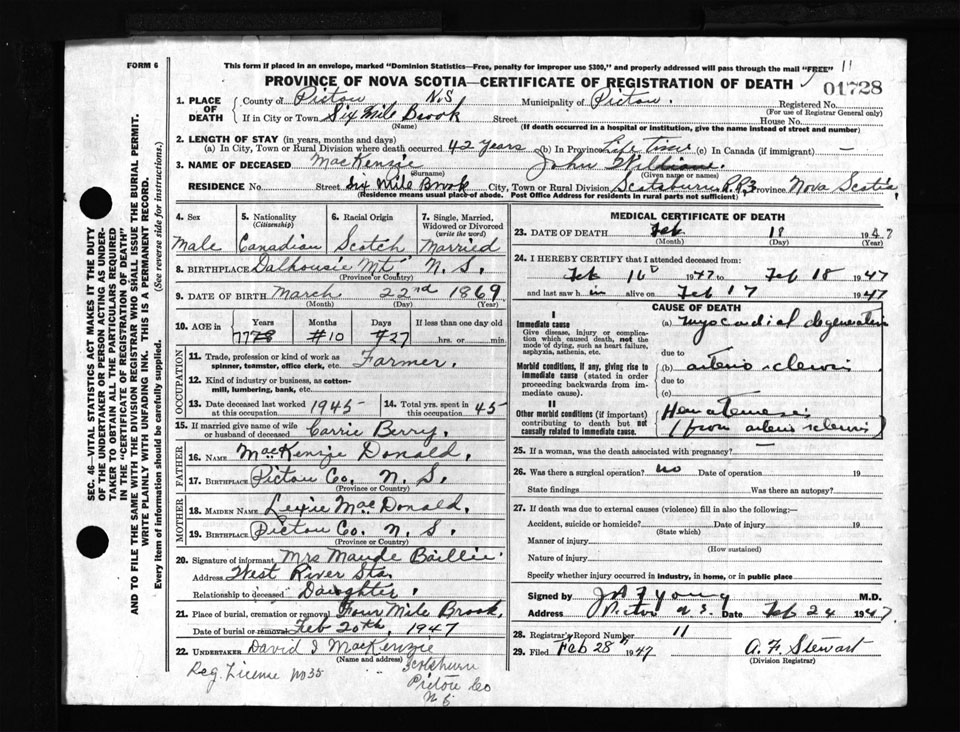 FORM 6
This form if placed in an envelope, marked "Dominion Statistics—Free, penalty for improper use $300," and properly addressed will pass through the mail "FREE" 11
PROVINCE OF NOVA SCOTIA—CERTIFICATE OF REGISTRATION OF DEATH
01728
1. PLACE OF DEATH County of Pictou N.S Municipality of Pictou. Registered No.
(For use of Registrar General only)
If in City or Town Six Mile Brook Street House No.
(Name) (If death occurred in a hospital or institution, give the name instead of street and number)
2. LENGTH OF STAY (in years, months and days)
(a) In City, Town or Rural Division where death occurred 42 years (b) In Province Life Time (c) In Canada (if immigrant) —
3. NAME OF DECEASED MacKenzie John William.
(Surname) (Given or names)
RESIDENCE No. Street Six Mile Brook City, Town or Rural Division Scotsburn R.R.3 Province Nova Scotia
(Residence means usual place of abode. Post Office Address for residents in rural parts not sufficient)
4. Sex Male
5. Nationality (Citizenship) Canadian
6. Racial Origin Scotch
7. Single, Married, Widowed or Divorced (write the word) Married
8. BIRTHPLACE Dalhousie Mt. N.S.
(Province or Country)
9. DATE OF BIRTH March 22nd 1869
(Month) (Day) (Year)
10. AGE in Years Months Days If less than one day old
77 #10 #27 hrs. or min.
OCCUPATION
11. Trade, profession or kind of work as spinner, teamster, office clerk, etc. Farmer.
12. Kind of industry or business, as cotton-mill, lumbering, bank, etc.
13. Date deceased last worked at this occupation. 1945
14. Total yrs. spent in this occupation. 45
15. If married give name of wife or husband of deceased Carrie Berry.
FATHER
16. NAME MacKenzie Donald.
17. BIRTHPLACE Pictou Co. N.S.
(Province or Country)
MOTHER
18. MAIDEN NAME Lexie MacDonald.
19. BIRTHPLACE Pictou Co. N.S.
(Province or Country)
20. Signature of informant Mrs Maude Baillie
Address West River Sta.
Relationship to deceased Daughter.
21. Place of burial, cremation or removal Four Mile Brook,
Date of burial or removal Feb 20th, 1947
22. UNDERTAKER David I MacKenzie
(Name and address) Scotsburn
Reg. License No 35 Pictou Co
N.S
MEDICAL CERTIFICATE OF DEATH
23. DATE OF DEATH Feb 18 1947
(Month) (Day) (Year)
24. I HEREBY CERTIFY that I attended deceased from:
Feb 16 1947 to Feb 18 1947
and last saw him alive on Feb 17 1947
CAUSE OF DEATH
I
Immediate cause
Give disease, injury or complication which caused death, not the mode of dying, such as heart failure, asphyxia, asthenia, etc.
(a) myocardial degeneration
due to
Morbid conditions, if any, giving rise to immediate cause (stated in order proceeding backwards from immediate cause).
(b) arterio sclerosis
due to
(c)
II
Other morbid conditions (if important) contributing to death but not causally related to immediate cause.
Hematemesis
(from arterio sclerosis)
25. If a woman, was the death associated with pregnancy? —
26. Was there a surgical operation? no Date of operation 19
State findings Was there an autopsy?
27. If death was due to external causes (violence) fill in also the following:—
Accident, suicide or homicide? Date of injury 19
(State which)
Manner of injury
(How sustained)
Nature of injury
Specify whether injury occurred in industry, in home, or in public place
Signed by J A F Young M.D.
Address Pictou N.S. Date Feb 24 1947
28. Registrar's Record Number 11
29. Filed Feb 28th 1947 A. F. Stewart
(Division Registrar)
SEC. 46—VITAL STATISTICS ACT MAKES IT THE DUTY
OF THE UNDERTAKER OR PERSON ACTING AS UNDER-
TAKER TO OBTAIN ALL THE PARTICULARS REQUIRED
IN THE "CERTIFICATE OF REGISTRATION OF DEATH"
AND TO FILE THE SAME WITH THE DIVISION REGISTRAR WHO SHALL ISSUE THE BURIAL PERMIT.
WRITE PLAINLY WITH UNFADING INK. THIS IS A PERMANENT RECORD.
Every item of information should be carefully supplied. (See reverse side for instructions.)